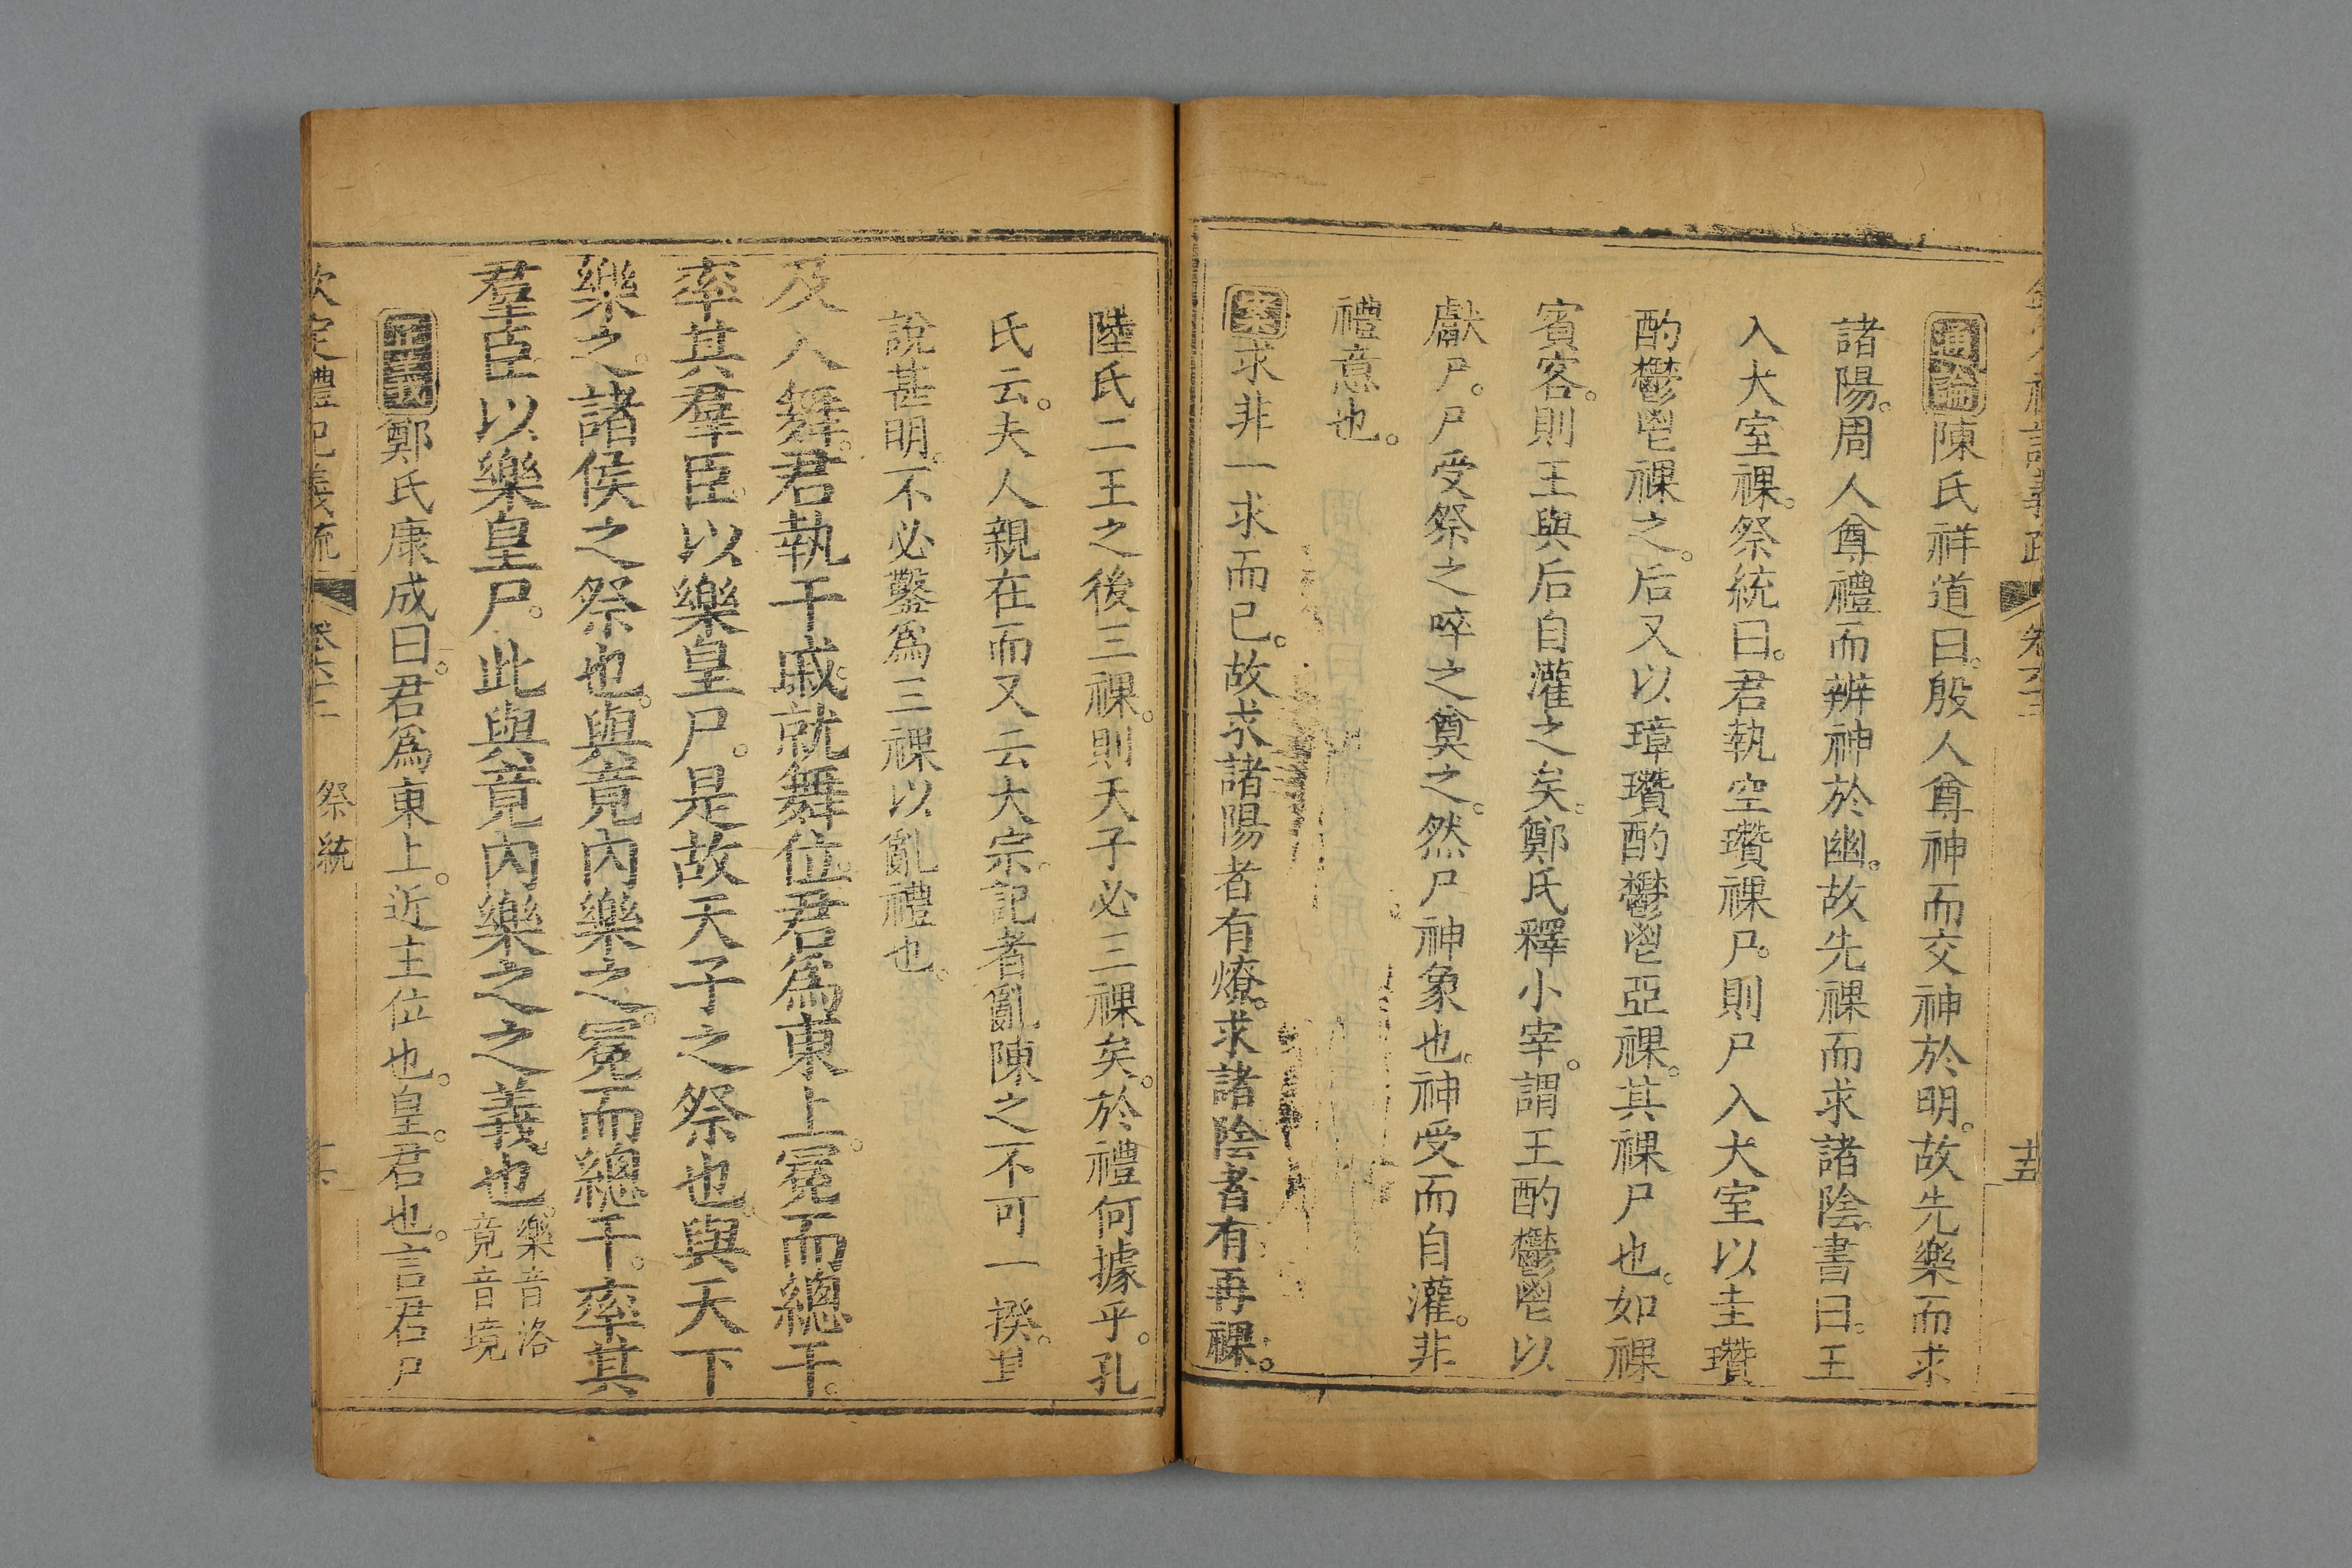 通論陳氏祥道曰。殷人尊神而交神於明。故先樂而求
諸陽。周人尊禮而辨神於幽。故先祼而求諸陰。書曰。王
入大室祼。祭統曰。君執空瓚祼尸。則尸入大室以圭瓚
酌鬱鬯祼之。后又以璋瓚酌鬱鬯亞祼。其祼尸也。如祼
賓客。則王與后自灌之矣。鄭氏釋小宰。謂王酌鬱鬯以
獻尸。尸受祭之啐之奠之。然尸神象也。神受而自灌。非
禮意也。
案求非一求而已。故求諸陽者有燎。求諸陰者有再祼。
陸氏二王之後三祼。則天子必三祼矣。於禮何據乎。孔
氏云。夫人親在而又云大宗。記者亂陳之不可一揆。
說甚明。不必鑿為三祼以亂禮也。
及入舞。君執干戚。就舞位。君為東上。冕而總干。
率其羣臣。以樂皇尸。是故天子之祭也。與天下
樂之。諸侯之祭也。與竟內樂之。冕而總干。率其
羣臣以樂皇尸。此與竟內樂之之義也。樂音洛
竟音境
正義鄭氏康成曰。君為東上。近主位也。皇。君也。言君尸
欽定禮記義疏 卷六十二 祭統